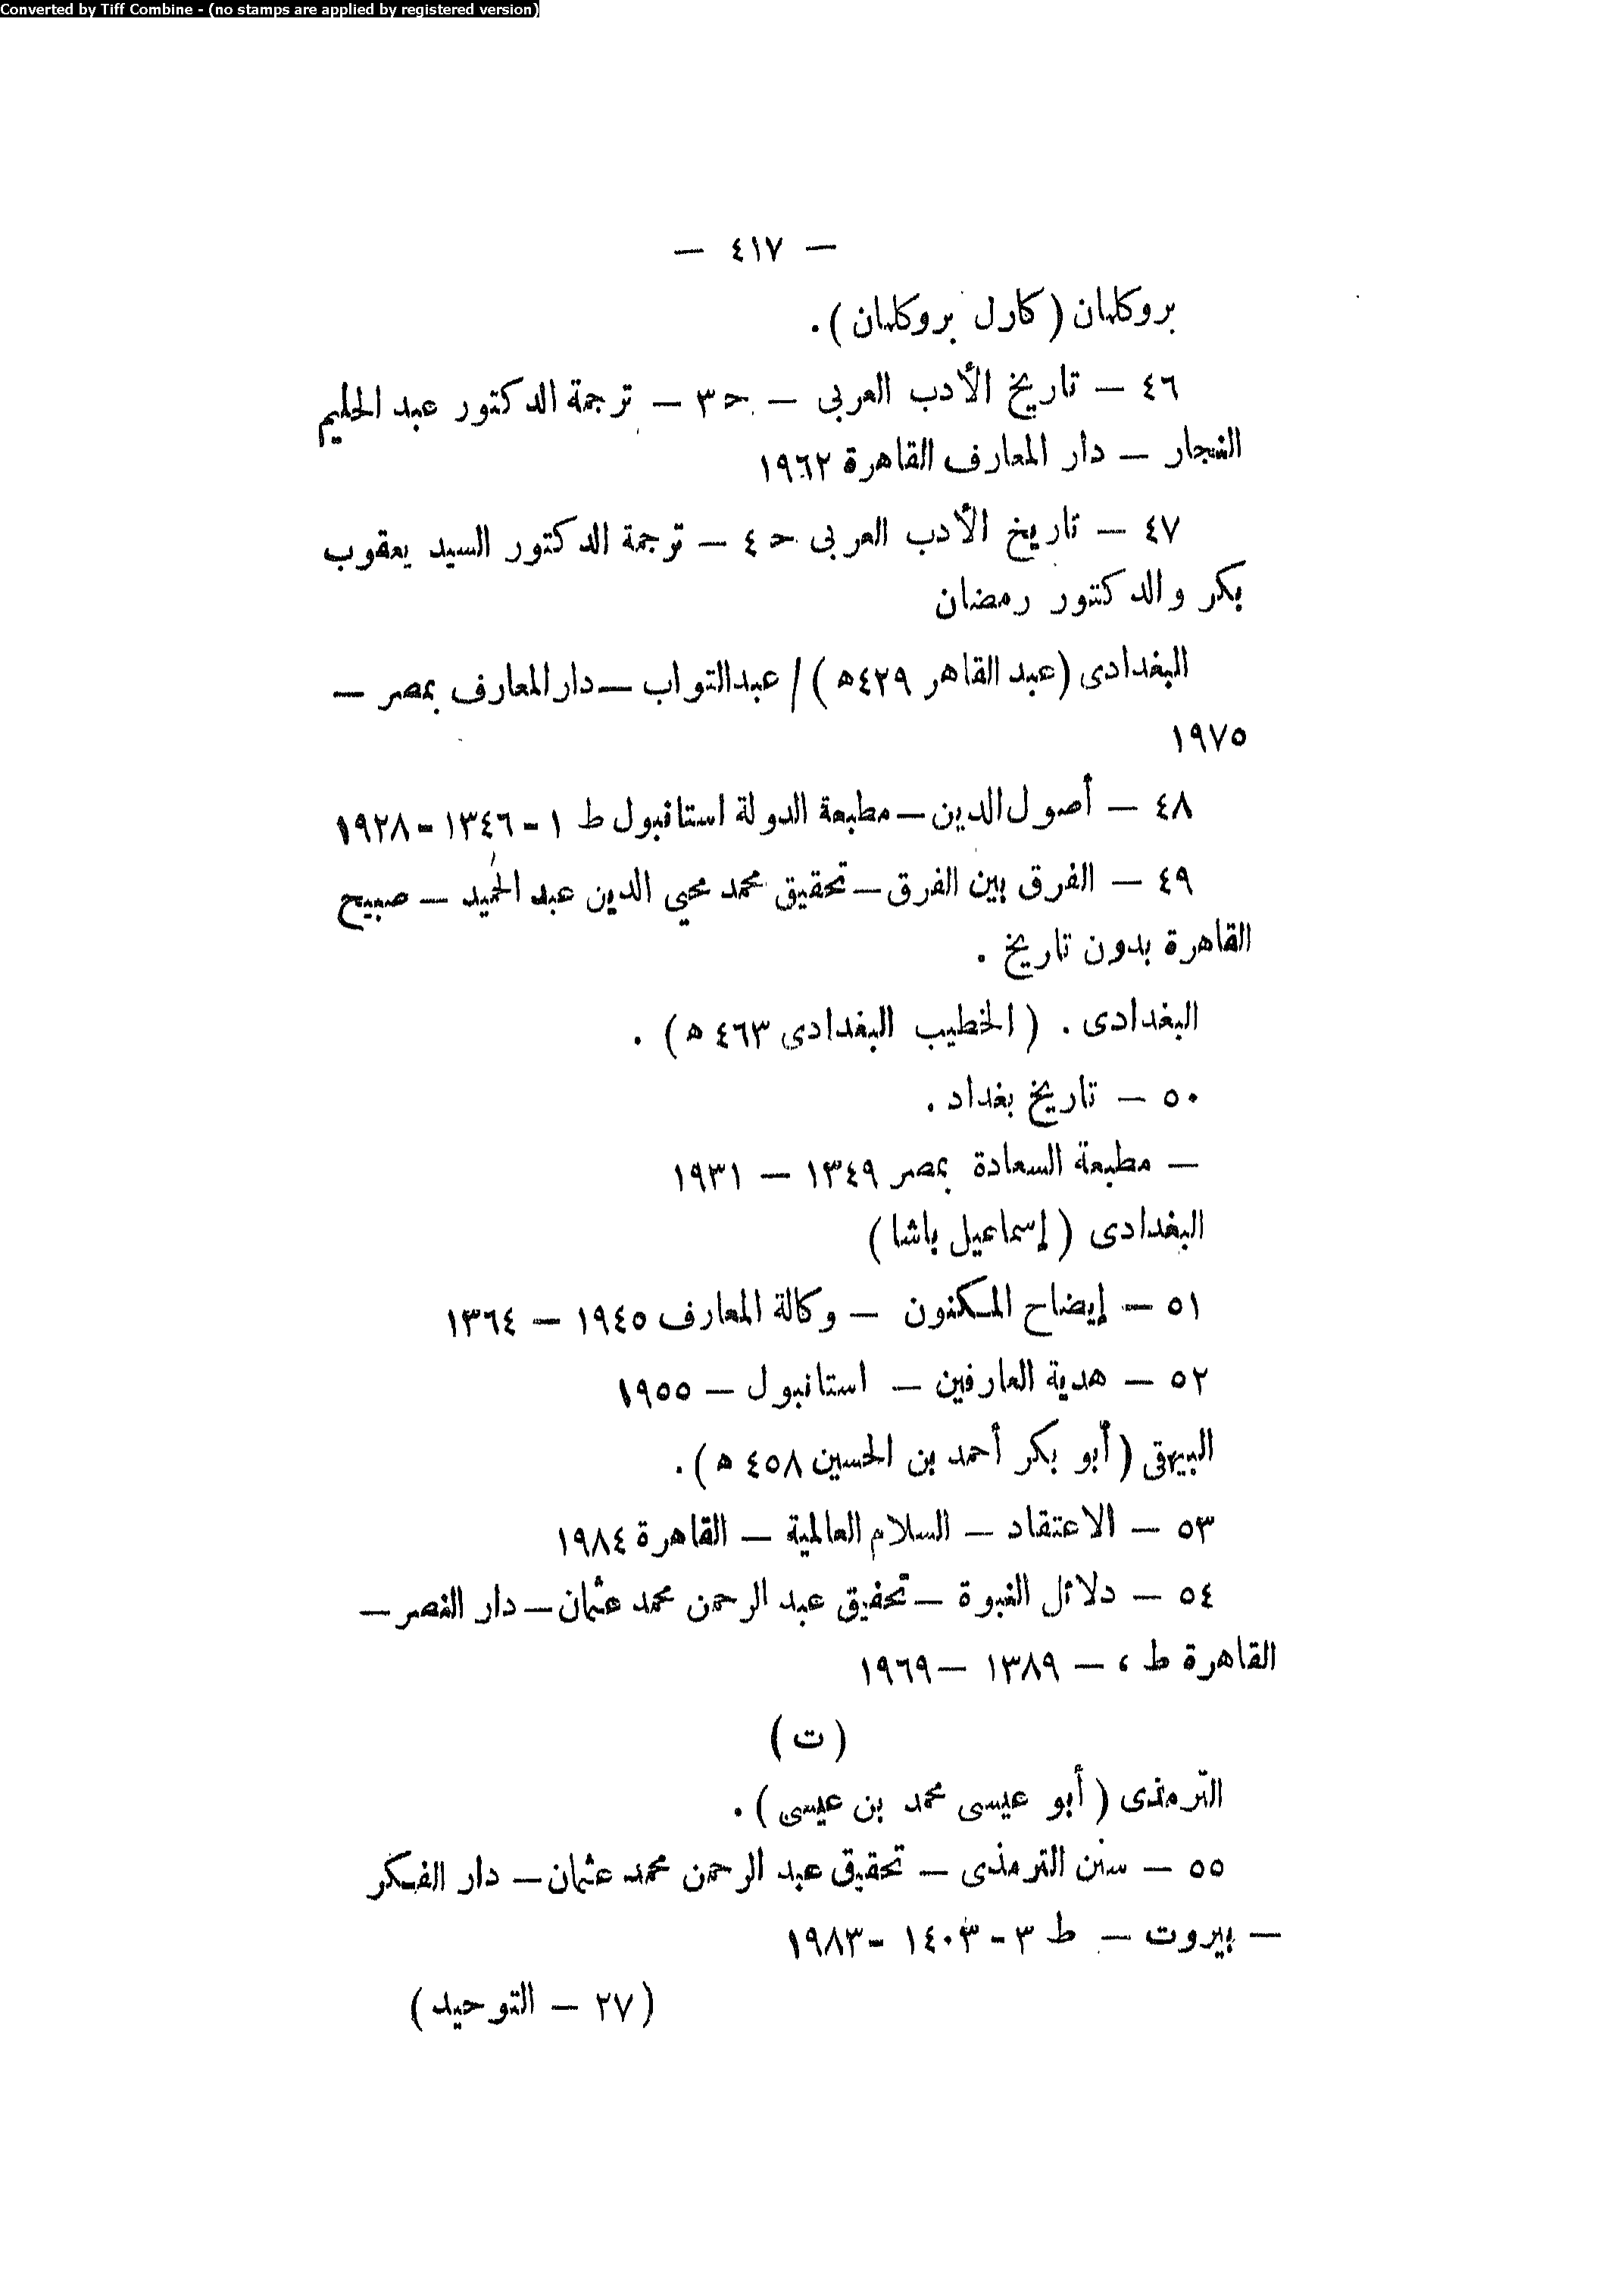 Converted by Tiff Combine - (no stamps are applied by registered version)
— ٤١٧ —
بروكلمان (كارل بروكلمان).
٤٦ — تاريخ الأدب العربى — ح٣ — ترجمة الدكتور عبد الحليم
النجار — دار المعارف القاهرة ١٩٦٢
٤٧ — تاريخ الأدب العربى ح ٤ — ترجمة الدكتور السيد يعقوب
بكر والدكتور رمضان
البغدادى (عبد القاهر ٤٢٩ه) / عبدالتواب — دار المعارف بمصر —
١٩٧٥
٤٨ — أصول الدين — مطبعة الدولة استانبول ط ١ - ١٣٤٦ - ١٩٢٨
٤٩ — الفرق بين الفرق — تحقيق محمد محيي الدين عبد الحميد — صبيح
القاهرة بدون تاريخ .
البغدادى . (الخطيب البغدادى ٤٦٣ ه) .
٥٠ — تاريخ بغداد .
— مطبعة السعادة بمصر ١٣٤٩ — ١٩٣١
البغدادى (إسماعيل باشا)
٥١ — إيضاح المكنون — وكالة المعارف ١٩٤٥ — ١٣٦٤
٥٢ — هدية العارفين — استانبول — ١٩٥٥
البيهقى (أبو بكر أحمد بن الحسين ٤٥٨ ه).
٥٣ — الاعتقاد — السلام العالمية — القاهرة ١٩٨٤
٥٤ — دلائل النبوة — تحقيق عبد الرحمن محمد عثمان — دار النصر —
القاهرة ط ، — ١٣٨٩ — ١٩٦٩
(ت)
الترمذى (أبو عيسى محمد بن عيسى).
٥٥ — سنن الترمذى — تحقيق عبد الرحمن محمد عثمان — دار الفكر
— بيروت — ط ٣ - ١٤٠٣ - ١٩٨٣
(٢٧ — التوحيد)